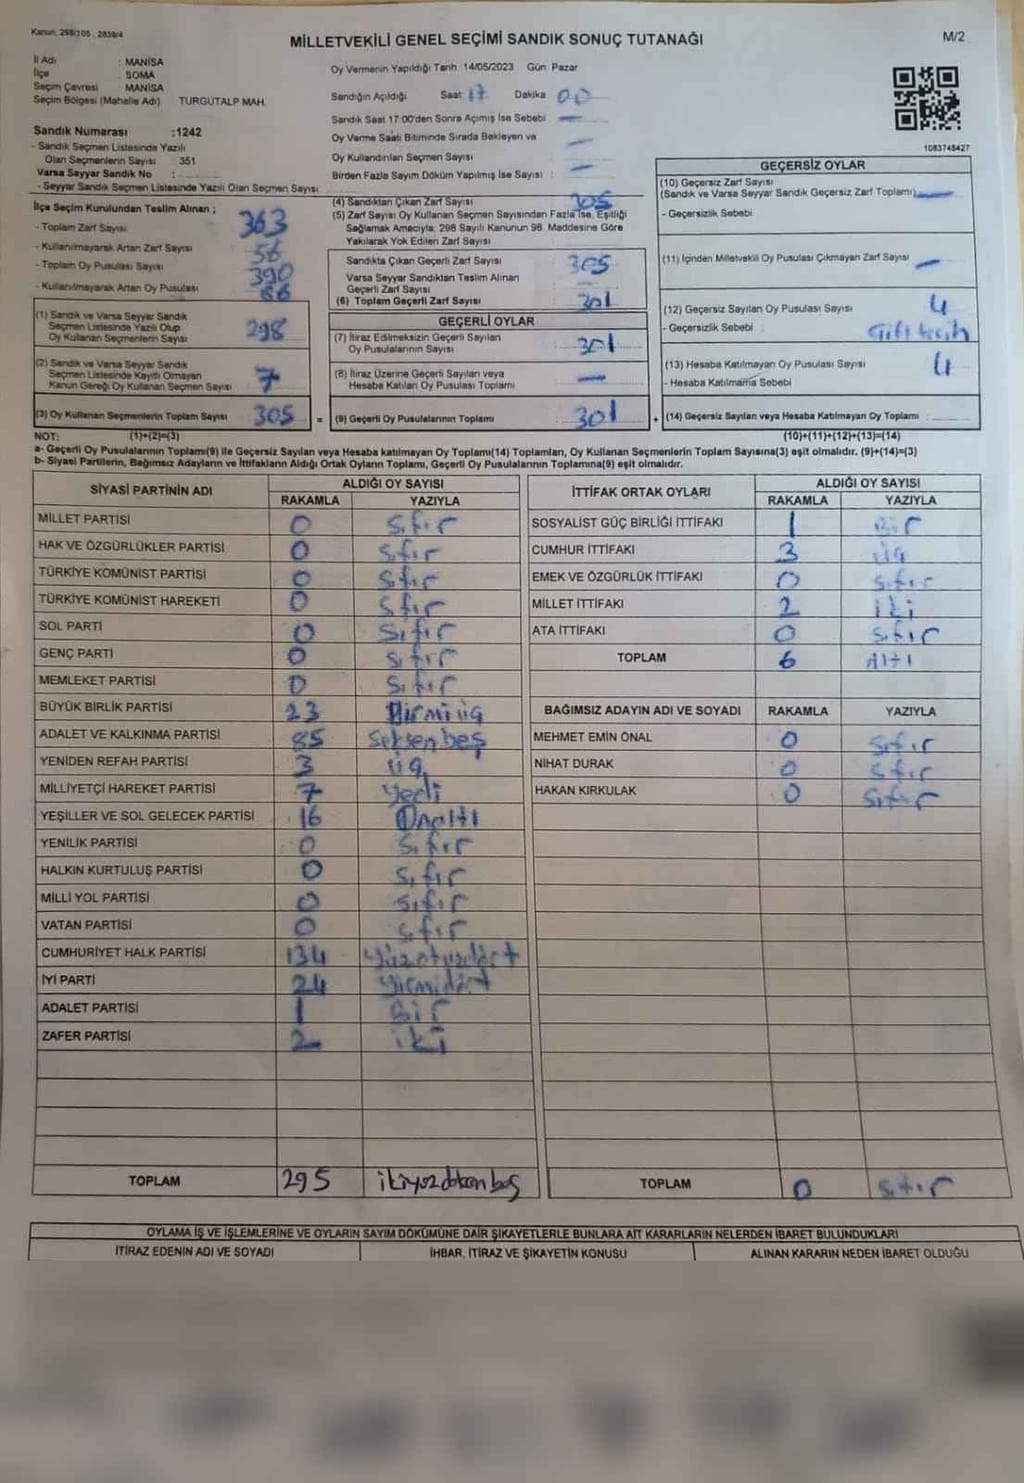 Kanun, 298/105 , 2839/4
MİLLETVEKİLİ GENEL SEÇİMİ SANDIK SONUÇ TUTANAĞI
M/2
İl Adı : MANİSA
İlçe : SOMA
Seçim Çevresi : MANİSA
Seçim Bölgesi (Mahalle Adı) : TURGUTALP MAH.
Oy Vermenin Yapıldığı Tarih :14/05/2023 Gün: Pazar
Sandığın Açıldığı Saat: 17 Dakika 00
Sandık Saat 17:00'den Sonra Açımış İse Sebebi : —
Oy Verme Saati Bitiminde Sırada Bekleyen ve
Oy Kullandırılan Seçmen Sayısı : —
Birden Fazla Sayım Döküm Yapılmış İse Sayısı : —
1083748427
Sandık Numarası :1242
- Sandık Seçmen Listesinde Yazılı
Olan Seçmenlerin Sayısı : 351
Varsa Seyyar Sandık No :
- Seyyar Sandık Seçmen Listesinde Yazılı Olan Seçmen Sayısı :
İlçe Seçim Kurulundan Teslim Alınan ;
- Toplam Zarf Sayısı 363
- Kullanılmayarak Artan Zarf Sayısı 56
- Toplam Oy Pusulası Sayısı 390
- Kullanılmayarak Artan Oy Pusulası 86
(1) Sandık ve Varsa Seyyar Sandık
Seçmen Listesinde Yazılı Olup
Oy Kullanan Seçmenlerin Sayısı 298
(2) Sandık ve Varsa Seyyar Sandık
Seçmen Listesinde Kayıtlı Olmayan
Kanun Gereği Oy Kullanan Seçmen Sayısı 7
(3) Oy Kullanan Seçmenlerin Toplam Sayısı 305 =
(4) Sandıktan Çıkan Zarf Sayısı 305
(5) Zarf Sayısı Oy Kullanan Seçmen Sayısından Fazla İse, Eşitliği
Sağlamak Amacıyla, 298 Sayılı Kanunun 98. Maddesine Göre
Yakılarak Yok Edilen Zarf Sayısı
Sandıkta Çıkan Geçerli Zarf Sayısı 305
Varsa Seyyar Sandıktan Teslim Alınan
Geçerli Zarf Sayısı
(6) Toplam Geçerli Zarf Sayısı 301
GEÇERLİ OYLAR
(7) İtiraz Edilmeksizin Geçerli Sayılan
Oy Pusulalarının Sayısı 301
(8) İtiraz Üzerine Geçerli Sayılan veya
Hesaba Katılan Oy Pusulası Toplamı —
(9) Geçerli Oy Pusulalarının Toplamı 301 +
GEÇERSİZ OYLAR
(10) Geçersiz Zarf Sayısı
(Sandık ve Varsa Seyyar Sandık Geçersiz Zarf Toplamı) —
- Geçersizlik Sebebi
(11) İçinden Milletvekili Oy Pusulası Çıkmayan Zarf Sayısı —
(12) Geçersiz Sayılan Oy Pusulası Sayısı 4
- Geçersizlik Sebebi :
(13) Hesaba Katılmayan Oy Pusulası Sayısı 4
- Hesaba Katılmama Sebebi
(14) Geçersiz Sayılan veya Hesaba Katılmayan Oy Toplamı
NOT: (1)+(2)=(3) (10)+(11)+(12)+(13)=(14)
a- Geçerli Oy Pusulalarının Toplamı(9) ile Geçersiz Sayılan veya Hesaba katılmayan Oy Toplamı(14) Toplamları, Oy Kullanan Seçmenlerin Toplam Sayısına(3) eşit olmalıdır. (9)+(14)=(3)
b- Siyasi Partilerin, Bağımsız Adayların ve İttifakların Aldığı Ortak Oyların Toplamı, Geçerli Oy Pusulalarının Toplamına(9) eşit olmalıdır.
SİYASİ PARTİNİN ADI ALDIĞI OY SAYISI
RAKAMLA YAZIYLA
MİLLET PARTİSİ 0 Sıfır
HAK VE ÖZGÜRLÜKLER PARTİSİ 0 Sıfır
TÜRKİYE KOMÜNİST PARTİSİ 0 Sıfır
TÜRKİYE KOMÜNİST HAREKETİ 0 Sıfır
SOL PARTİ 0 Sıfır
GENÇ PARTİ 0 Sıfır
MEMLEKET PARTİSİ 0 Sıfır
BÜYÜK BİRLİK PARTİSİ 23 Yirmiüç
ADALET VE KALKINMA PARTİSİ 85 Seksenbeş
YENİDEN REFAH PARTİSİ 3 üç
MİLLİYETÇİ HAREKET PARTİSİ 7 Yedi
YEŞİLLER VE SOL GELECEK PARTİSİ 16 Onaltı
YENİLİK PARTİSİ 0 Sıfır
HALKIN KURTULUŞ PARTİSİ 0 Sıfır
MİLLİ YOL PARTİSİ 0 Sıfır
VATAN PARTİSİ 0 Sıfır
CUMHURİYET HALK PARTİSİ 134 Yüzotuzdört
İYİ PARTİ 24 Yirmidört
ADALET PARTİSİ 1 Bir
ZAFER PARTİSİ 2 iki
TOPLAM 295 ikiyüzdoksanbeş
İTTİFAK ORTAK OYLARI ALDIĞI OY SAYISI
RAKAMLA YAZIYLA
SOSYALİST GÜÇ BİRLİĞİ İTTİFAKI 1 Bir
CUMHUR İTTİFAKI 3 üç
EMEK VE ÖZGÜRLÜK İTTİFAKI 0 Sıfır
MİLLET İTTİFAKI 2 iki
ATA İTTİFAKI 0 Sıfır
TOPLAM 6 Altı
BAĞIMSIZ ADAYIN ADI VE SOYADI RAKAMLA YAZIYLA
MEHMET EMİN ÖNAL 0 Sıfır
NİHAT DURAK 0 Sıfır
HAKAN KIRKULAK 0 Sıfır
TOPLAM 0 Sıfır
OYLAMA İŞ VE İŞLEMLERİNE VE OYLARIN SAYIM DÖKÜMÜNE DAİR ŞİKAYETLERLE BUNLARA AİT KARARLARIN NELERDEN İBARET BULUNDUKLARI
İTİRAZ EDENİN ADI VE SOYADI İHBAR, İTİRAZ VE ŞİKAYETİN KONUSU ALINAN KARARIN NEDEN İBARET OLDUĞU